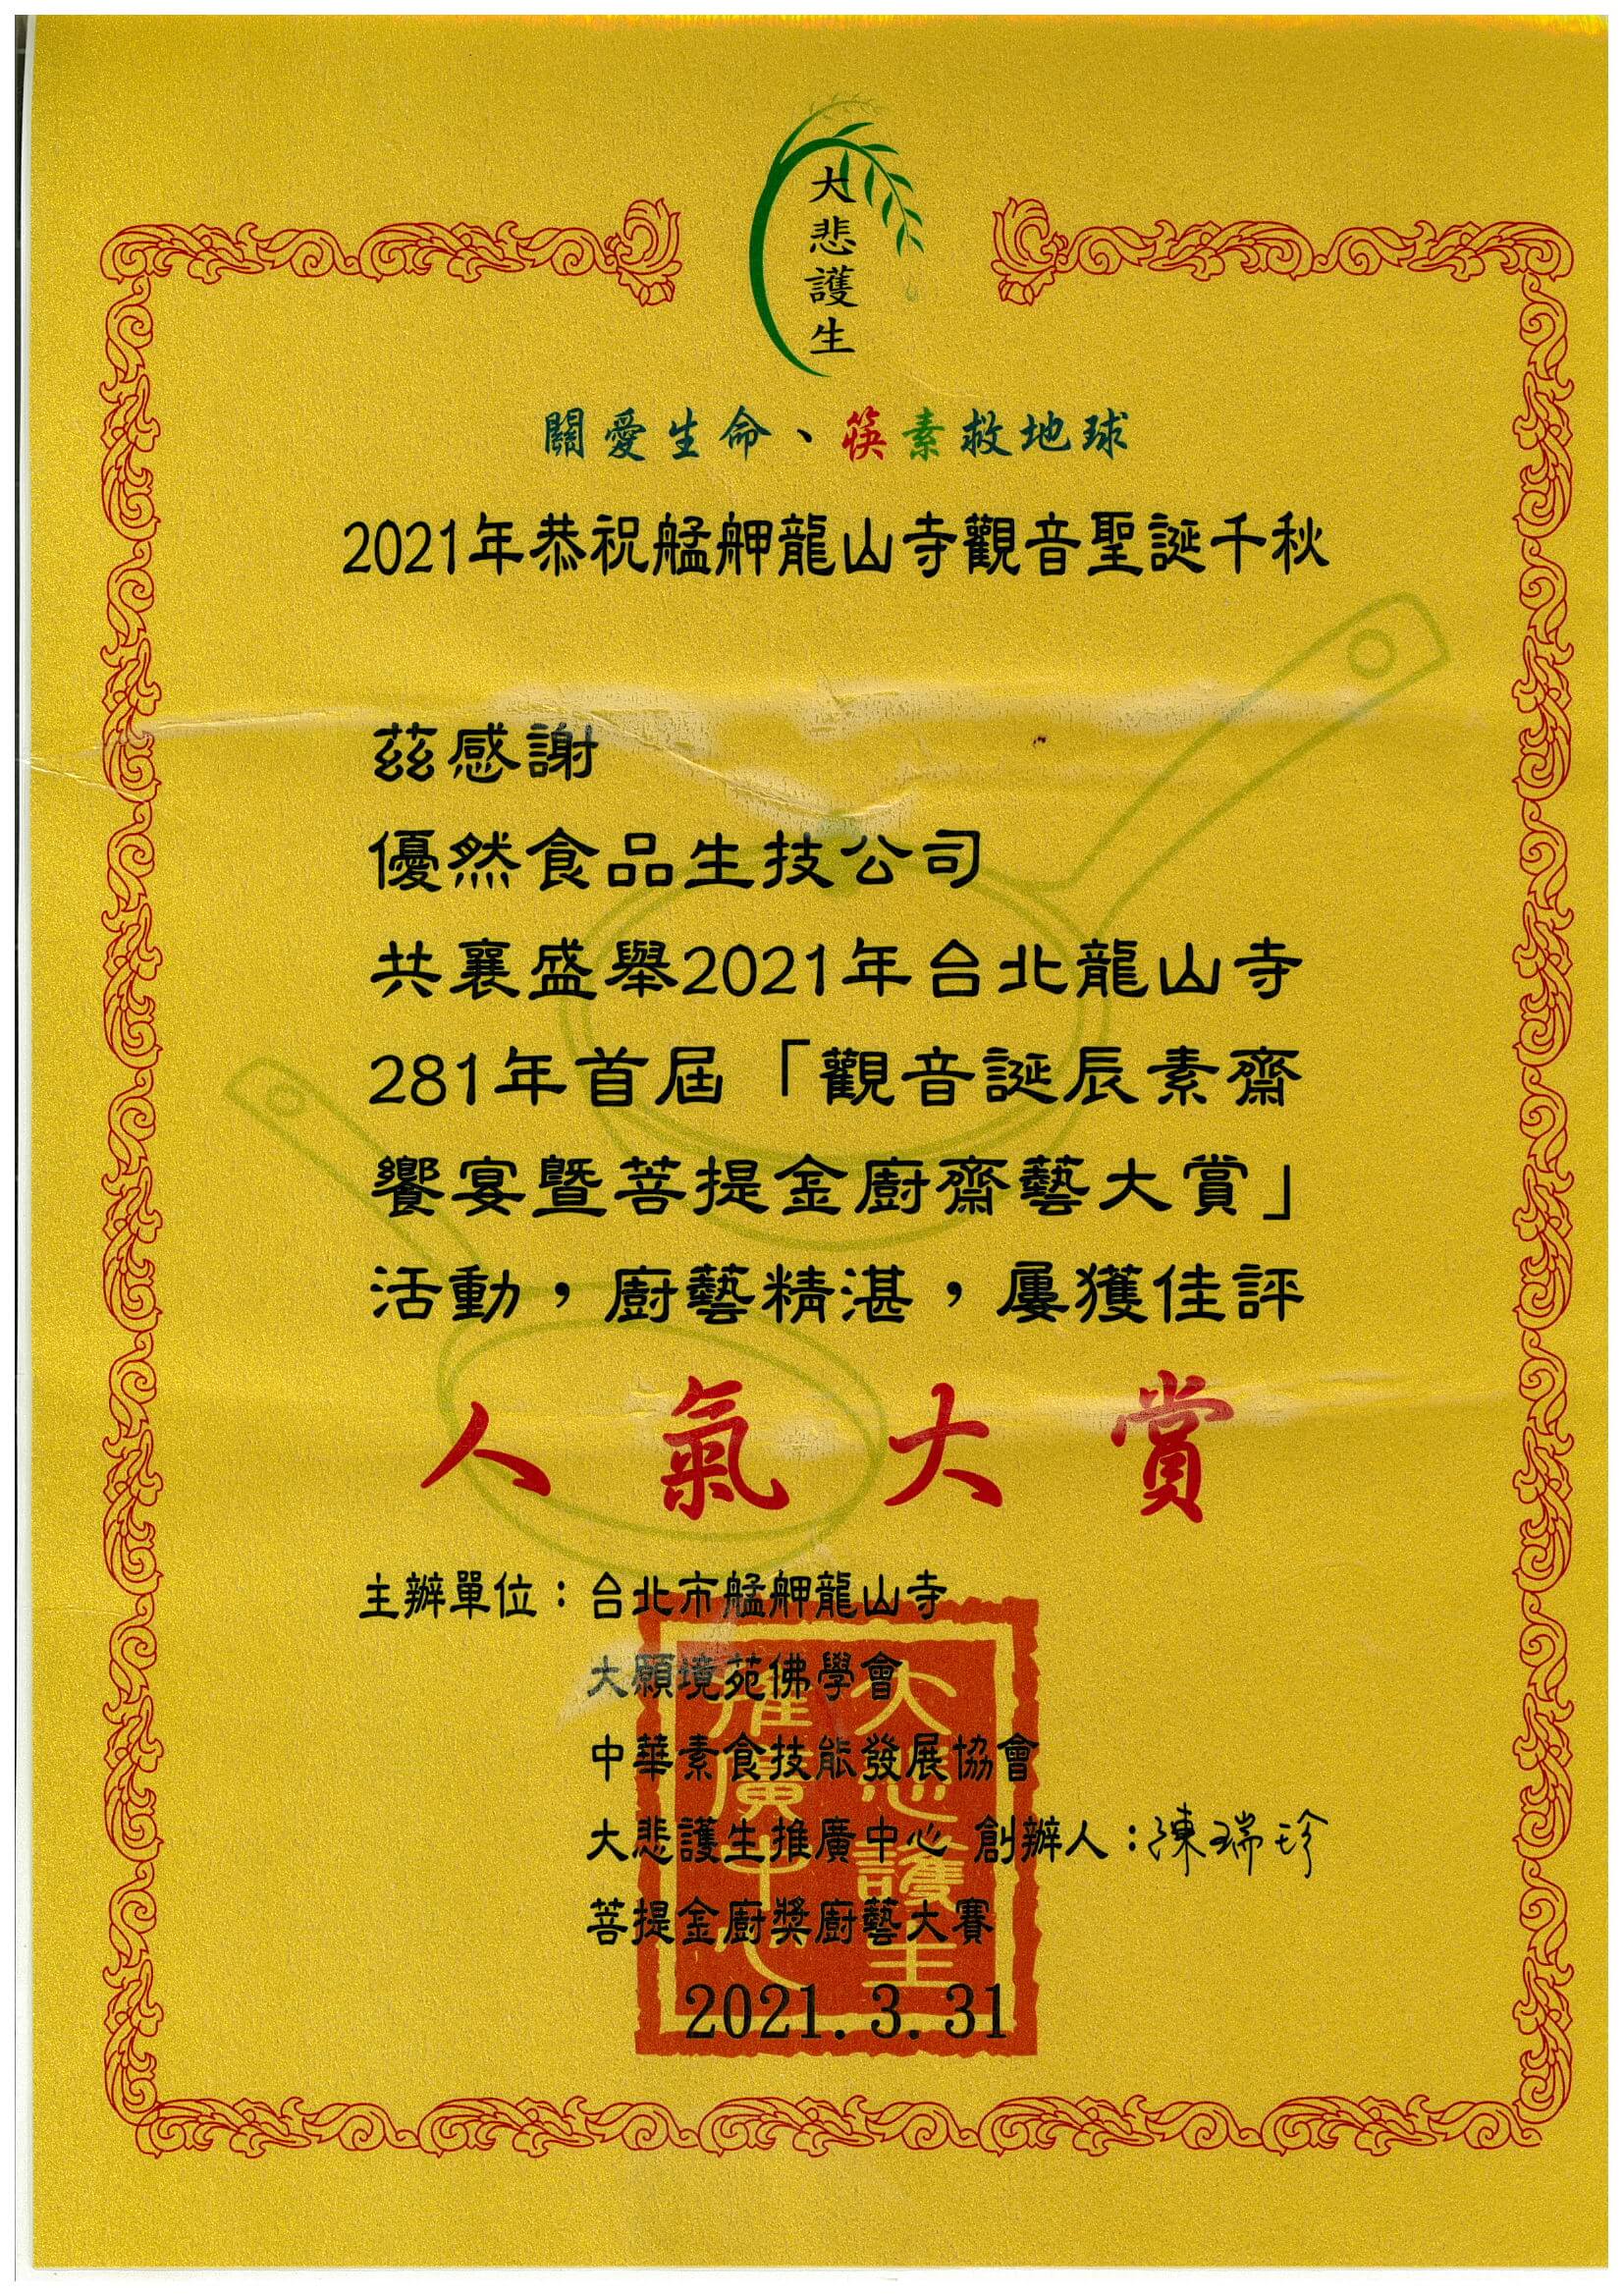 大悲護生
關愛生命、筷素救地球
2021年恭祝艋舺龍山寺觀音聖誕千秋
茲感謝
優然食品生技公司
共襄盛舉2021年台北龍山寺
281年首屆「觀音誕辰素齋
饗宴暨菩提金廚齋藝大賞」
活動，廚藝精湛，屢獲佳評
人氣大賞
主辦單位：台北市艋舺龍山寺
大願境苑佛學會
中華素食技能發展協會
大悲護生推廣中心 創辦人：陳瑞珍
菩提金廚獎廚藝大賽
2021.3.31
大悲護生
推廣中心